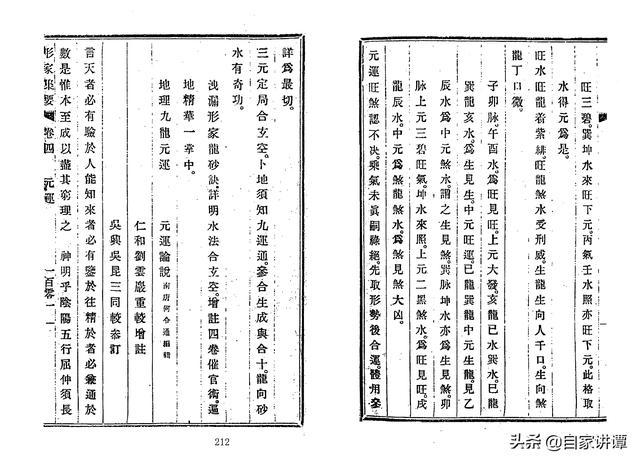 旺三碧。巽坤水來旺下元。丙氣壬水照亦旺下元。此格取
水得元爲是。
旺水旺龍着紫緋。旺龍煞水受刑威。生龍生向人千口。生向煞
龍丁口微。
子卯脉。午酉水。爲旺見旺。上元大發。亥龍巳水巽水。巳龍
巽龍亥水。爲生見生。中元旺運。巳龍巽龍中元生龍。見乙
辰水爲中元煞水。謂之生見煞。巽脉坤水。亦爲生見煞。卯
脉上元三碧旺氣。坤水來照。上元二黑煞水。爲旺見旺。戌
龍辰水。中元爲煞龍煞水。爲煞見煞大凶。
元運旺煞認不决。乘氣未眞嗣祿絕。先取形勢後合運。體用參
詳爲最切。
三元定局合玄空。卜地須知九運通。參合生成與合十。龍向砂
水有奇功。
洩漏形家龍砂訣。詳明水法合玄空。增註四卷催官術。遍
地精華一掌中。
地理九龍元運
元運論說 南唐何令通編輯
仁和劉雲巖重較增註
吳興吳昆三同較叅訂
言天者必有驗於人能知來者必有鑒於往精於者必兼通於
數是惟木至成以盡其窮理之 神明乎陰陽五行屈伸須長
形家集要 卷四 元運 一百零一
212
头条 @自家讲谭